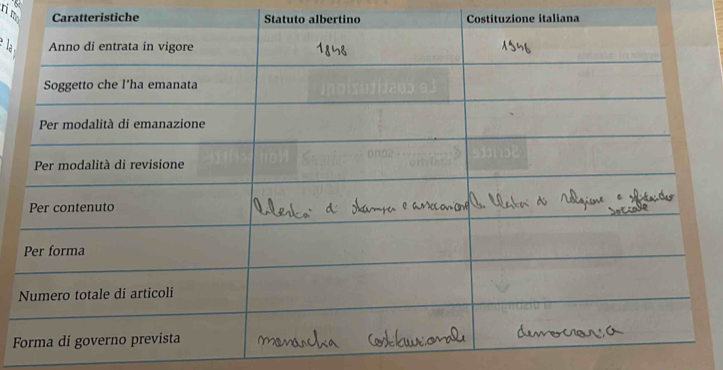 Caratteristiche Statuto albertino Costituzione italiana
Anno di entrata in vigore 1848 1946
Soggetto che l'ha emanata
Per modalità di emanazione
Per modalità di revisione
Per contenuto libertà di stampa e associazione libertà di religione e
sociale
Per forma
Numero totale di articoli
Forma di governo prevista monarchia costituzionale democrazia